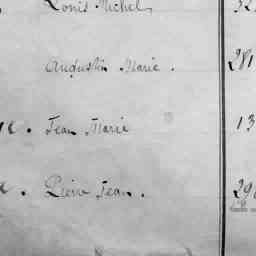 Louis Michel 32
Augustin Marie. 281
e. Jean Marie 13
e. Pierre Jean. 290